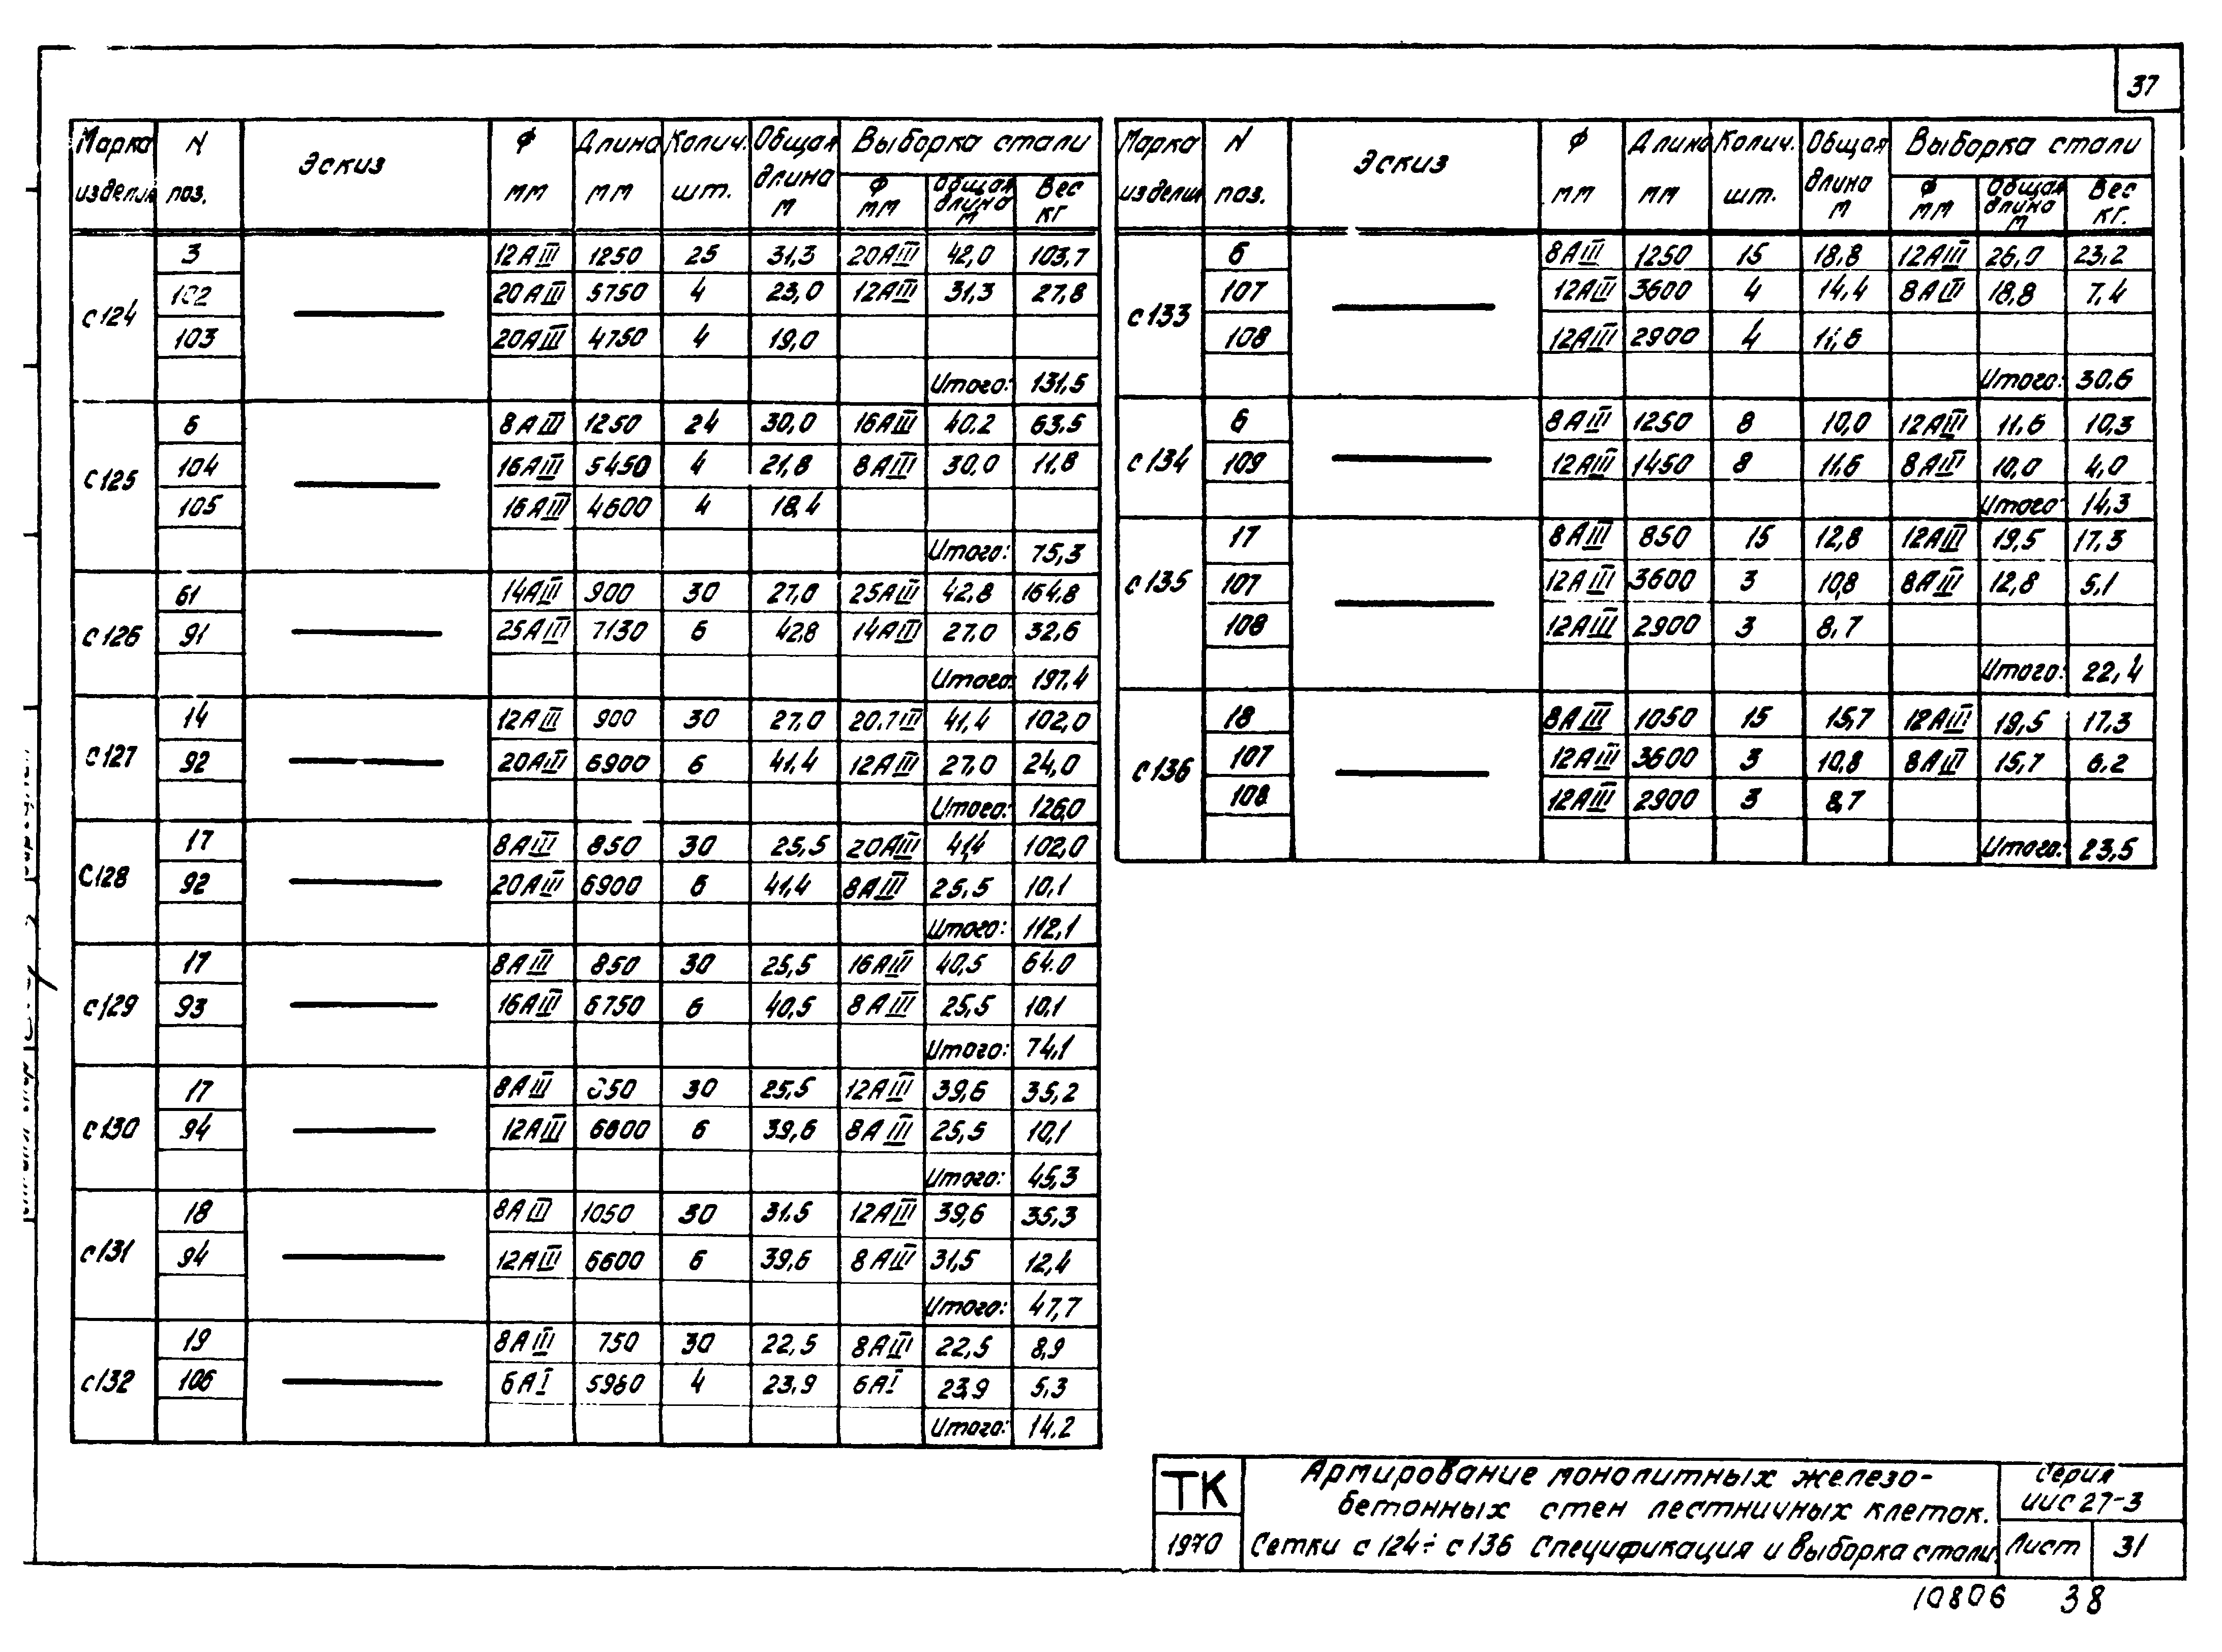 37
Марка изделия | N поз. | Эскиз | Ф мм | Длина мм | Колич. шт. | Общая длина м | Выборка стали: Ф мм | Общая длина м | Вес кг
с124 | 3 | 12АIII | 1250 | 25 | 31,3 | 20АIII | 42,0 | 103,7
102 | 20АIII | 5750 | 4 | 23,0 | 12АIII | 31,3 | 27,8
103 | 20АIII | 4750 | 4 | 19,0
Итого: 131,5
с125 | 6 | 8АIII | 1250 | 24 | 30,0 | 16АIII | 40.2 | 63.5
104 | 16АIII | 5450 | 4 | 21,8 | 8АIII | 30.0 | 11,8
105 | 16АIII | 4600 | 4 | 18,4
Итого: 75,3
с126 | 61 | 14АIII | 900 | 30 | 27,0 | 25АIII | 42,8 | 164,8
91 | 25АIII | 7130 | 6 | 42,8 | 14АIII | 27.0 | 32,6
Итого: 197.4
с127 | 14 | 12АIII | 900 | 30 | 27,0 | 20АIII | 41,4 | 102,0
92 | 20АIII | 6900 | 6 | 41,4 | 12АIII | 27,0 | 24,0
Итого: 126,0
С128 | 17 | 8АIII | 850 | 30 | 25,5 | 20АIII | 41,4 | 102,0
92 | 20АIII | 6900 | 6 | 41,4 | 8АIII | 25,5 | 10,1
Итого: 112,1
с129 | 17 | 8АIII | 850 | 30 | 25,5 | 16АIII | 40,5 | 64.0
93 | 16АIII | 6750 | 6 | 40,5 | 8АIII | 25,5 | 10,1
Итого: 74,1
с130 | 17 | 8АIII | 850 | 30 | 25,5 | 12АIII | 39,6 | 35,2
94 | 12АIII | 6600 | 6 | 39,6 | 8АIII | 25,5 | 10,1
Итого: 45,3
с131 | 18 | 8АIII | 1050 | 30 | 31.5 | 12АIII | 39,6 | 35,3
94 | 12АIII | 6600 | 6 | 39,6 | 8АIII | 31,5 | 12,4
Итого: 47,7
с132 | 19 | 8АIII | 750 | 30 | 22,5 | 8АIII | 22,5 | 8,9
106 | 6АI | 5980 | 4 | 23,9 | 6АI | 23,9 | 5,3
Итого: 14.2
Марка изделия | N поз. | Эскиз | Ф мм | Длина мм | Колич. шт. | Общая длина м | Выборка стали: Ф мм | Общая длина м | Вес кг.
с133 | 6 | 8АIII | 1250 | 15 | 18,8 | 12АIII | 26,0 | 23,2
107 | 12АIII | 3600 | 4 | 14,4 | 8АIII | 18,8 | 7,4
108 | 12АIII | 2900 | 4 | 11,6
Итого: 30.6
с134 | 6 | 8АIII | 1250 | 8 | 10,0 | 12АIII | 11,6 | 10,3
109 | 12АIII | 1450 | 8 | 11,6 | 8АIII | 10,0 | 4,0
Итого 14,3
с135 | 17 | 8АIII | 850 | 15 | 12,8 | 12АIII | 19,5 | 17.3
107 | 12АIII | 3600 | 3 | 10,8 | 8АIII | 12,8 | 5,1
108 | 12АIII | 2900 | 3 | 8,7
Итого: 22,4
с136 | 18 | 8АIII | 1050 | 15 | 15,7 | 12АIII | 19,5 | 17.3
107 | 12АIII | 3600 | 3 | 10,8 | 8АIII | 15,7 | 6.2
108 | 12АIII | 2900 | 3 | 8,7
Итого: 23,5
ТК
1970
Армирование монолитных железо-
бетонных стен лестничных клеток.
Сетки с124÷с136 Спецификация и выборка стали.
Серия
ИИС 27-3
Лист 31
10806 38